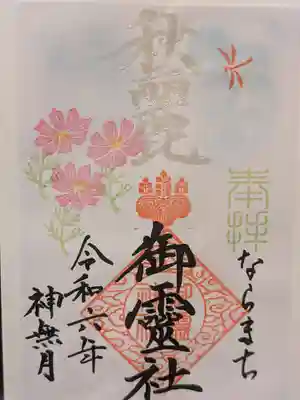 奉拝
ならまち
御靈社
令和六年
神無月